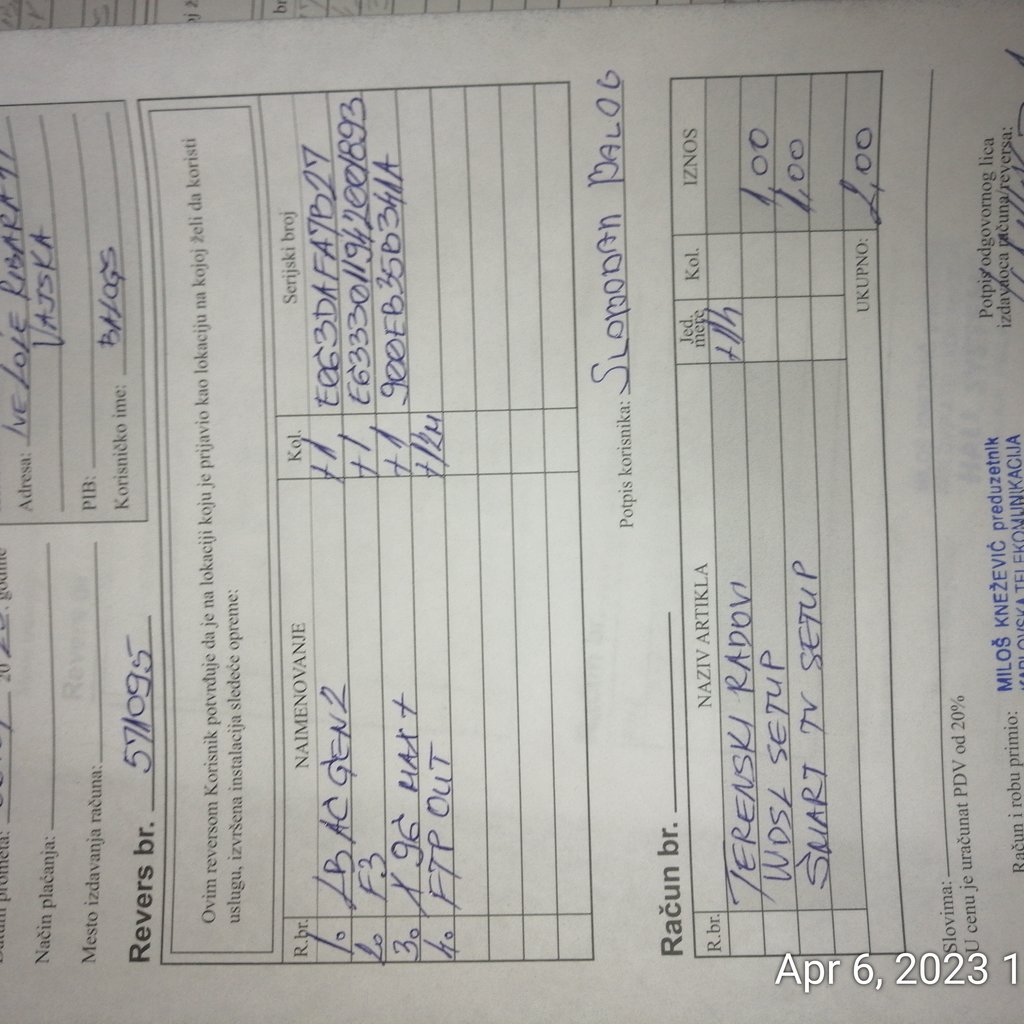 Način plaćanja:
Mesto izdavanja računa:
Adresa:
VAJSKA
PIB:
Korisničko ime: BALOGS
Revers br. 571095
Ovim reversom Korisnik potvrđuje da je na lokaciji koju je prijavio kao lokaciju na kojoj želi da koristi
uslugu, izvršena instalacija sledeće opreme:
R.br. NAIMENOVANJE Kol. Serijski broj
1. LBAC GEN2 +1 E063DAFA7B27
2. F3 +1
3. X 96 MAX + +1 900EB35B341A
4. FTP OUT
Potpis korisnika: SLOBODAN BALOG
Račun br.
R.br. NAZIV ARTIKLA Jed. mere Kol. IZNOS
TERENSKI RADOVI
WDSL SETUP 1,00
SMART TV SETUP 1,00
UKUPNO: 2,00
Slovima:
U cenu je uračunat PDV od 20%
Račun i robu primio:
MILOŠ KNEŽEVIĆ preduzetnik
KARLOVSKA TELEKOMUNIKACIJA
Potpis odgovornog lica
izdavaoca računa/reversa:
Apr 6, 2023 1